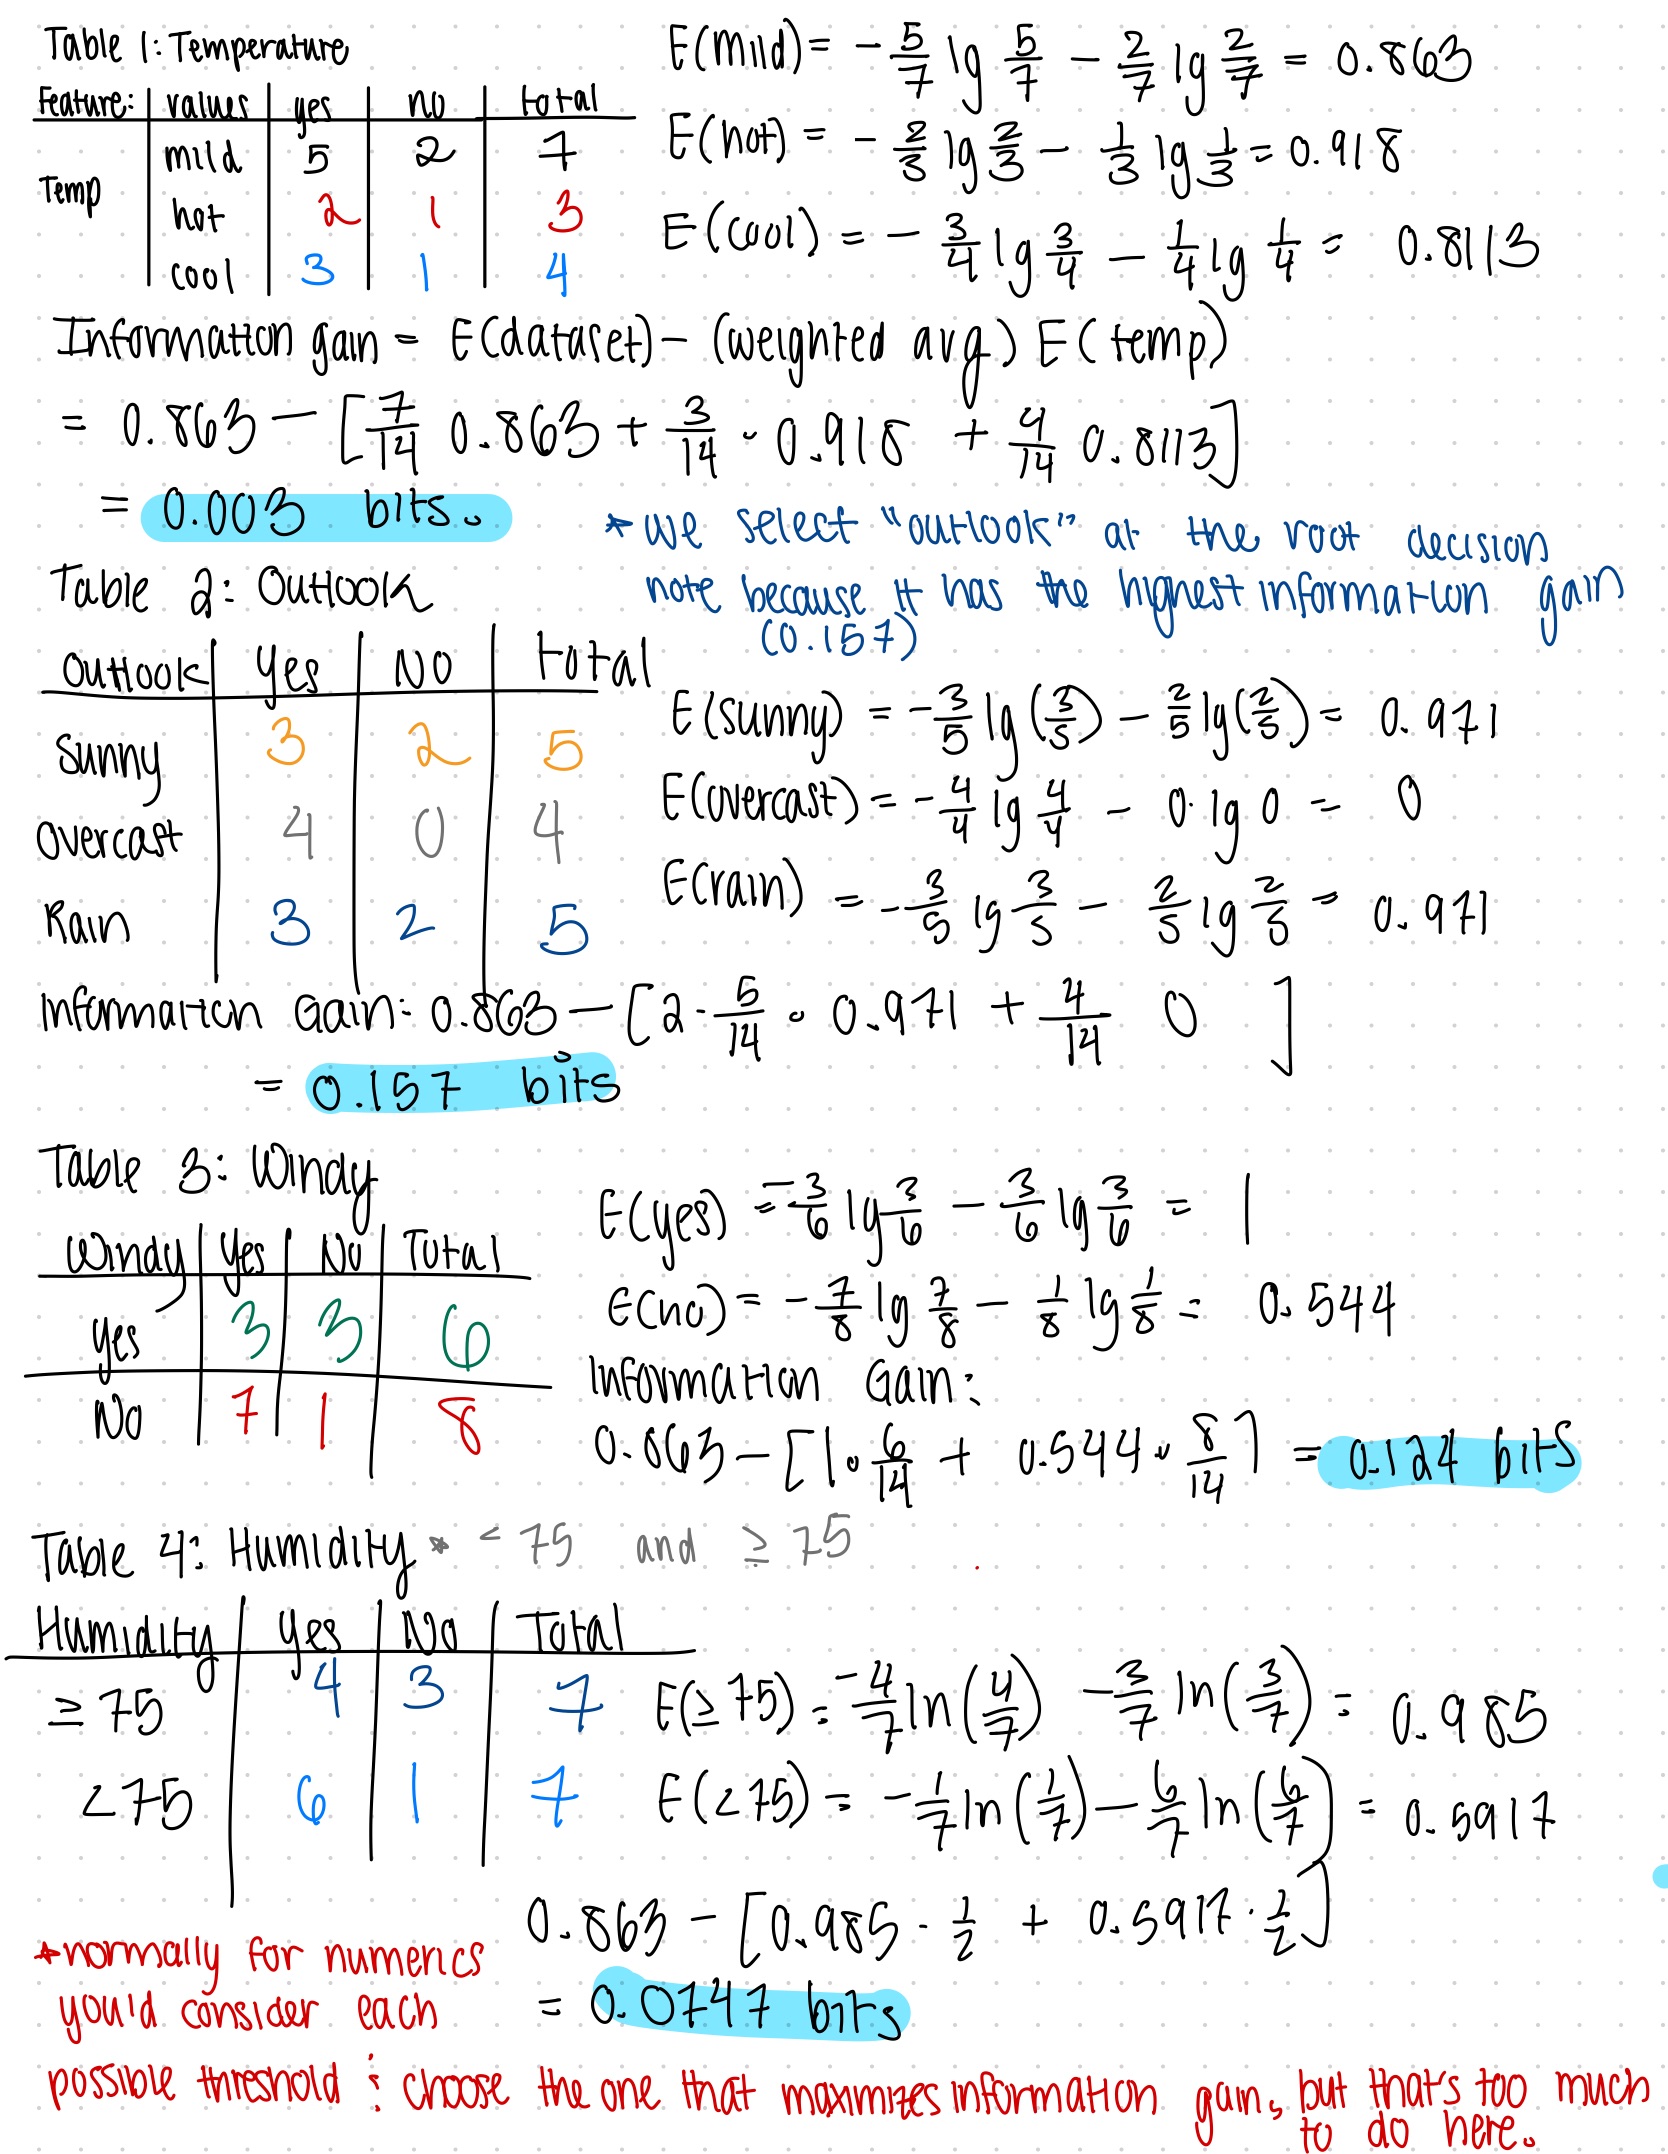 Table 1: Temperature
Feature: values yes no total
Temp
mild 5 2 7
hot 2 1 3
cool 3 1 4
E(mild) = - 5/7 lg 5/7 - 2/7 lg 2/7 = 0.863
E(hot) = - 2/3 lg 2/3 - 1/3 lg 1/3 = 0.918
E(cool) = - 3/4 lg 3/4 - 1/4 lg 1/4 = 0.8113
Information gain = E(dataset) - (weighted avg) E(temp)
= 0.863 - [7/14 0.863 + 3/14 · 0.918 + 4/14 0.8113]
= 0.003 bits.
* we select "outlook" at the root decision
note because it has the highest information gain
(0.157)
Table 2: Outlook
Outlook Yes No total
Sunny 3 2 5
Overcast 4 0 4
Rain 3 2 5
E(sunny) = - 3/5 lg (3/5) - 2/5 lg (2/5) = 0.971
E(overcast) = - 4/4 lg 4/4 - 0 · lg 0 = 0
E(rain) = - 3/5 lg 3/5 - 2/5 lg 2/5 = 0.971
Information Gain: 0.863 - [2 · 5/14 · 0.971 + 4/14 0 ]
= 0.157 bits
Table 3: Windy
Windy Yes No Total
yes 3 3 6
No 7 1 8
E(yes) = - 3/6 lg 3/6 - 3/6 lg 3/6 = 1
E(no) = - 7/8 lg 7/8 - 1/8 lg 1/8 = 0.544
Information Gain:
0.863 - [1 · 6/14 + 0.544 · 8/14] = 0.124 bits
Table 4: Humidity * < 75 and ≥ 75
Humidity yes No Total
≥ 75 4 3 7
< 75 6 1 7
E(≥ 75) = - 4/7 ln (4/7) - 3/7 ln (3/7) = 0.985
E(< 75) = - 1/7 ln (1/7) - 6/7 ln (6/7) = 0.5917
0.863 - [0.985 · 1/2 + 0.5917 · 1/2]
= 0.0747 bits
* normally for numerics
you'd consider each
possible threshold & choose the one that maximizes information gain, but that's too much
to do here.